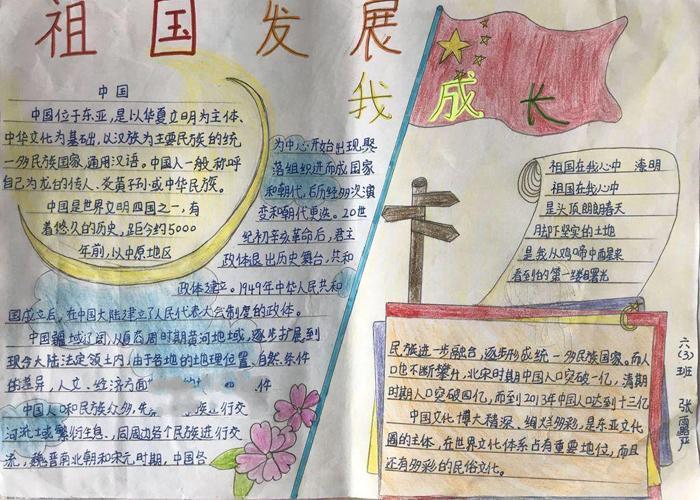 祖国发展
我成长
中国
中国位于东亚,是以华夏文明为主体、
中华文化为基础,以汉族为主要民族的统
一多民族国家,通用汉语。中国人一般称呼
自己为龙的传人、炎黄子孙或中华民族。
中国是世界文明四国之一,有
着悠久的历史,距今约5000
年前,以中原地区
为中心开始出现聚
落组织进而成国家
和朝代,后历经多次演
变和朝代更迭。20世
纪初辛亥革命后,君主
政体退出历史舞台,共和
政体建立。1949年中华人民共和
国成立后,在中国大陆建立了人民代表大会制度的政体。
中国疆域辽阔,从西周时期黄河地域,逐步扩展到
现今大陆法定领土内,由于各地的地理位置、自然条件
的差异,人文、经济方面
中国人口和民族众多,先 族进行交
河流域繁衍生息、同周边各个民族进行交
流,魏晋南北朝和宋元时期,中国各
祖国在我心中 海明
祖国在我心中
是头顶朗朗春天
脚下坚实的土地
是我从鸡啼中西望来
看到的第一缕曙光
民族进一步融合,逐步形成统一多民族国家。而人
口也不断攀升,北宋时期中国人口突破一亿,清期
时期人口突破四亿,而到2013年中国人口达到十三亿
中国文化博大精深、绚烂多彩,是东亚文化
圈的主体,在世界文化体系占有重要地位,而且
还有多彩的民俗文化。
六(3)班 张